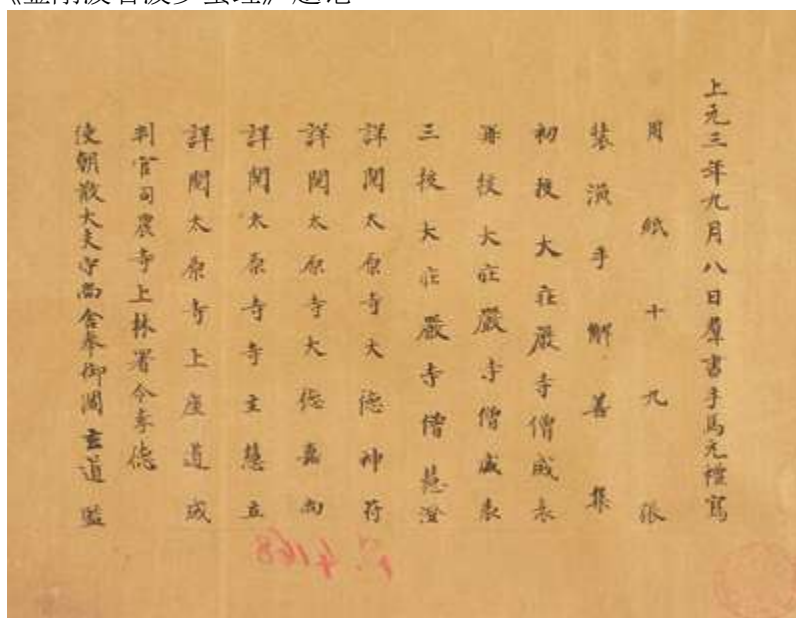 上元三年九月八日羣書手馬元禮寫
用紙十九張
裝潢手解善集
初挍大莊嚴寺僧威表
再挍大莊嚴寺僧威表
三挍大莊嚴寺僧慧澄
詳閱太原寺大德神符
詳閱太原寺大德嘉尚
詳閱太原寺寺主慧立
詳閱太原寺上座道成
判官司農寺上林署令李德
使朝散大夫守尚舍奉御閻玄道監